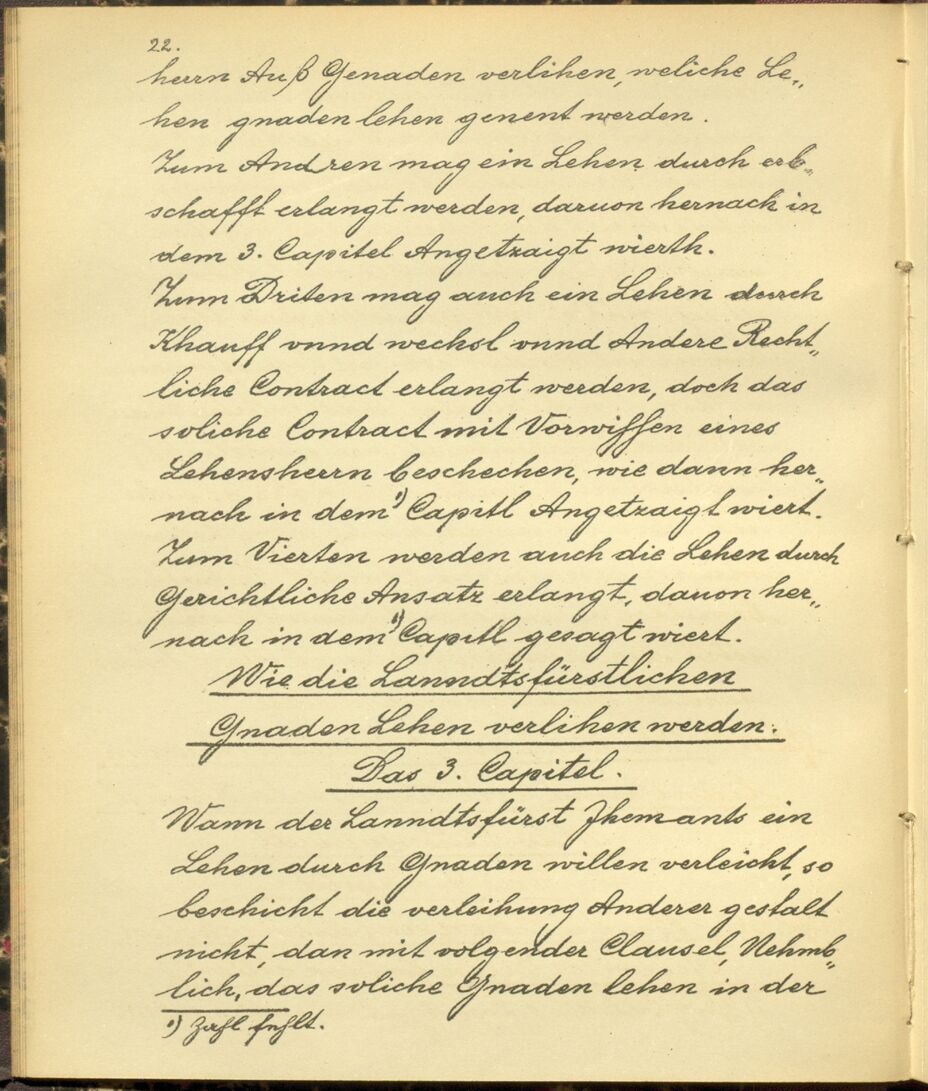 22.
herrn Auß Genaden verlihen, weliche Le„
hen gnaden lehen genent werden.
Zum Andren mag ein Lehen durch erb„
schafft erlangt werden, daruon hernach in
dem 3. Capitel Angetzaigt wierth.
Zum Driten mag auch ein Lehen durch
Khauff vnnd wechsl vnnd Andere Recht„
liche Contract erlangt werden, doch das
soliche Contract mit Vorwissen eines
Lehensherrn beschechen, wie dann her„
nach in dem ¹) Capitl Angetzaigt wiert.
Zum Vierten werden auch die Lehen durch
Gerichtliche Ansatz erlangt, dauon her„
nach in dem ¹) Capitl gesagt wiert.
Wie die Lanndtsfürstlichen
Gnaden Lehen verlihen werden.
Das 3. Capitel.
Wann der Lanndtsfürst Jhemants ein
Lehen durch Gnaden willen verleicht, so
beschicht die verleihung Anderer gestalt
nicht, dan mit volgender Clausel, Nehmb„
lich, das soliche Gnaden lehen in der
¹) Zahl fehlt.